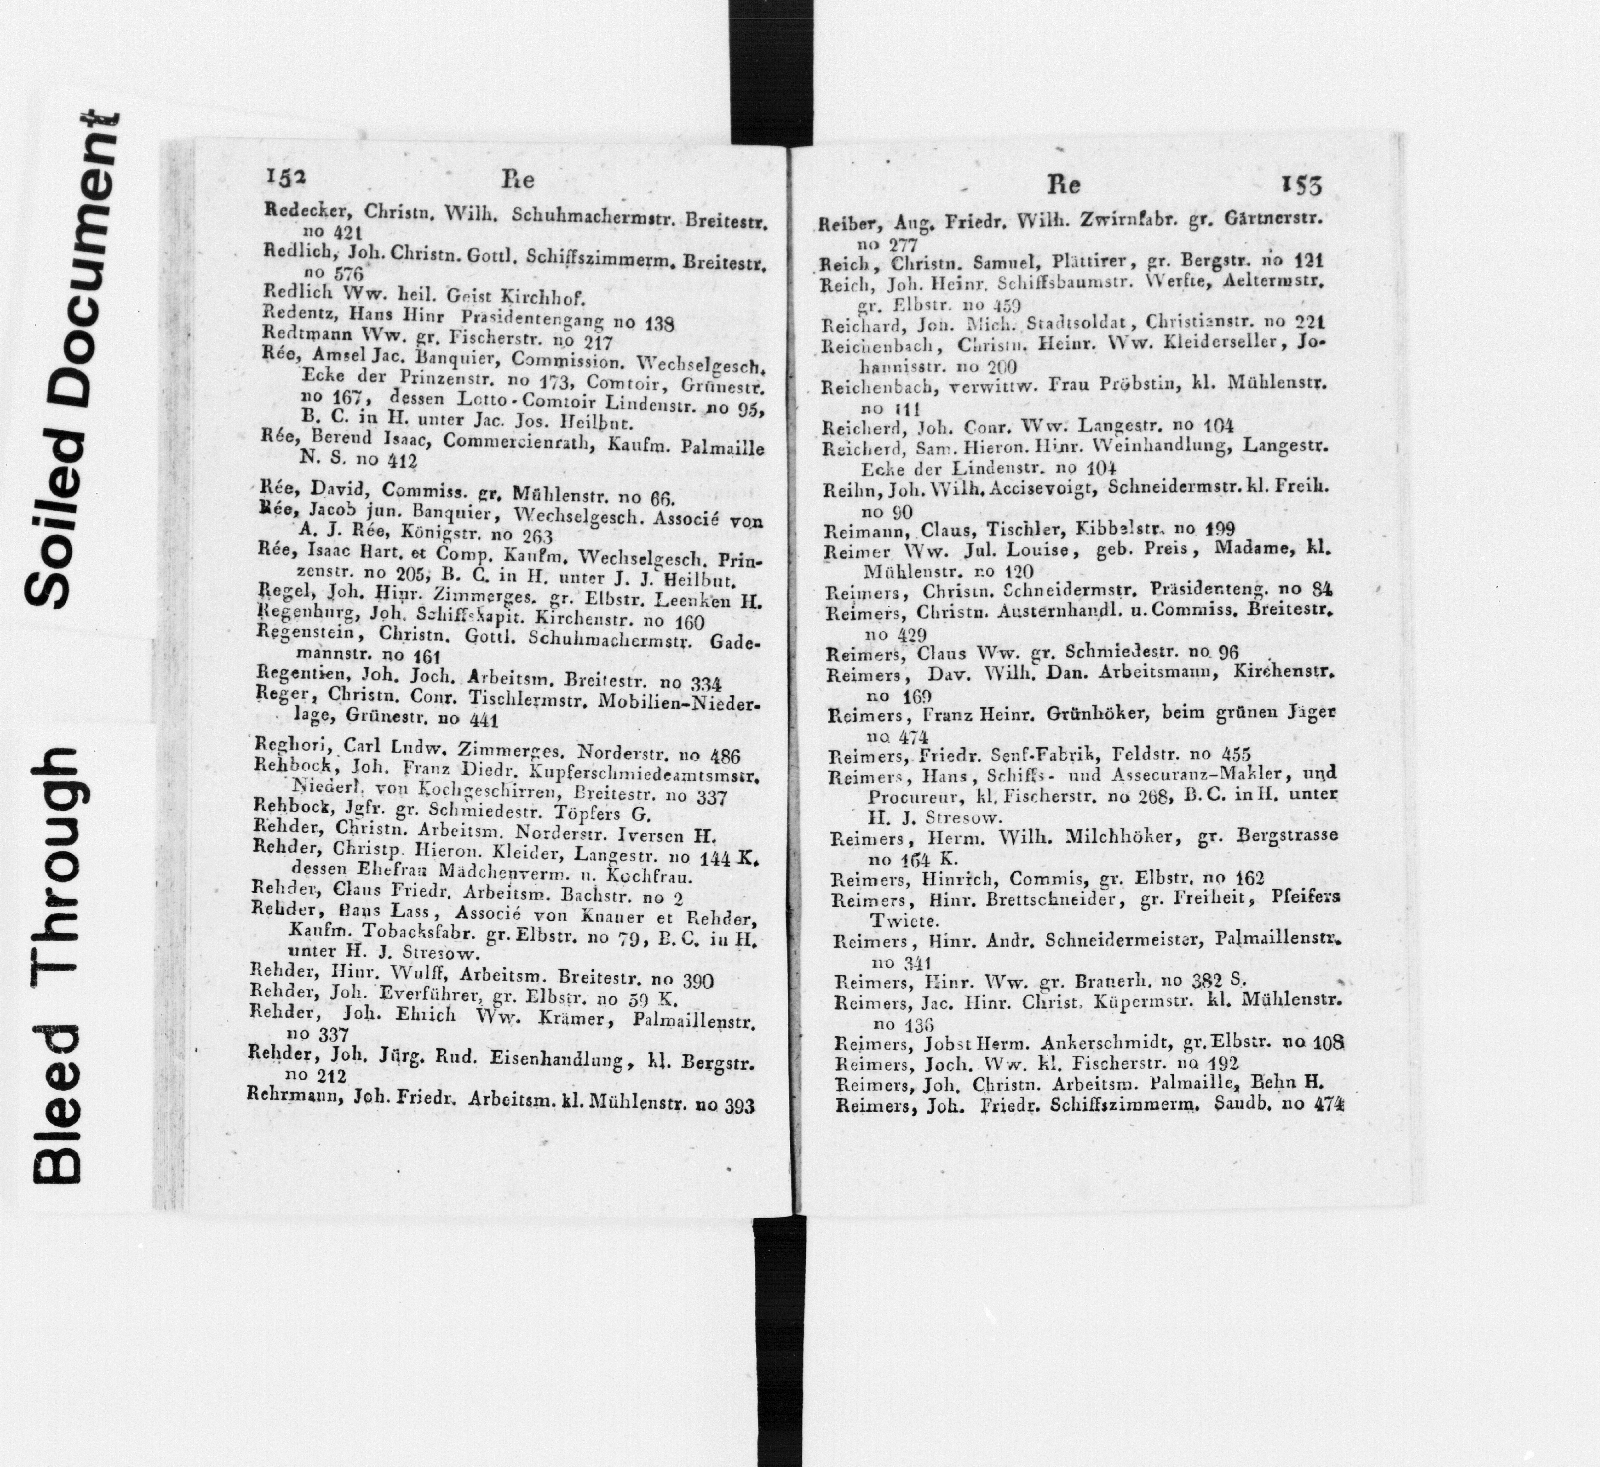 Soiled Document
Bleed Through
152 Re
Redecker, Christn. Wilh. Schuhmachermstr. Breitestr.
no 421
Redlich, Joh. Christn. Gottl. Schiffszimmerm. Breitestr.
no 576
Redlich Ww. heil. Geist Kirchhof.
Redentz, Hans Hinr Präsidentengang no 138
Redtmann Ww. gr. Fischerstr. no 217
Rée, Amsel Jac. Banquier, Commission. Wechselgesch.
Ecke der Prinzenstr. no 173, Comtoir, Grünestr.
no 167, dessen Lotto-Comtoir Lindenstr. no 95,
B. C. in H. unter Jac. Jos. Heilbut.
Rée, Berend Isaac, Commercienrath, Kaufm. Palmaille
N. S. no 412
Rée, David, Commiss. gr. Mühlenstr. no 66.
Rée, Jacob jun. Banquier, Wechselgesch. Associé von
A. J. Rée, Königstr. no 263
Rée, Isaac Hart. et Comp. Kaufm. Wechselgesch. Prin-
zenstr. no 205, B. C. in H. unter J. J. Heilbut.
Regel, Joh. Hinr. Zimmerges. gr. Elbstr. Leenken H.
Regenburg, Joh. Schiffskapit. Kirchenstr. no 160
Regenstein, Christn. Gottl. Schuhmachermstr. Gade-
mannstr. no 161
Regentien, Joh. Joch. Arbeitsm. Breitestr. no 334
Reger, Christn. Conr. Tischlermstr. Mobilien-Nieder-
lage, Grünestr. no 441
Reghori, Carl Ludw. Zimmerges. Norderstr. no 486
Rehbock, Joh. Franz Diedr. Kupferschmiedeamtsmstr.
Niederl. von Kochgeschirren, Breitestr. no 337
Rehbock, Jgfr. gr. Schmiedestr. Töpfers G.
Rehder, Christn. Arbeitsm. Norderstr. Iversen H.
Rehder, Christp. Hieron. Kleider, Langestr. no 144 K.
dessen Ehefrau Mädchenverm. u. Kochfrau.
Rehder, Claus Friedr. Arbeitsm. Bachstr. no 2
Rehder, Hans Lass, Associé von Knauer et Rehder,
Kaufm. Tobacksfabr. gr. Elbstr. no 79, B. C. in H.
unter H. J. Stresow.
Rehder, Hinr. Wulff, Arbeitsm. Breitestr. no 390
Rehder, Joh. Everführer, gr. Elbstr. no 59 K.
Rehder, Joh. Ehrich Ww. Krämer, Palmaillenstr.
no 337
Rehder, Joh. Jürg. Rud. Eisenhandlung, kl. Bergstr.
no 212
Rehrmann, Joh. Friedr. Arbeitsm. kl. Mühlenstr. no 393
Re 153
Reiber, Aug. Friedr. Wilh. Zwirnfabr. gr. Gärtnerstr.
no 277
Reich, Christn. Samuel, Plättirer, gr. Bergstr. no 121
Reich, Joh. Heinr. Schiffsbaumstr. Werfte, Aeltermstr.
gr. Elbstr. no 459
Reichard, Joh. Mich. Stadtsoldat, Christianstr. no 221
Reichenbach, Christn. Heinr. Ww. Kleiderseller, Jo-
hannisstr. no 200
Reichenbach, verwittw. Frau Pröbstin, kl. Mühlenstr.
no 111
Reicherd, Joh. Conr. Ww. Langestr. no 104
Reicherd, Sam. Hieron. Hinr. Weinhandlung, Langestr.
Ecke der Lindenstr. no 104
Reihn, Joh. Wilh. Accisevoigt, Schneidermstr. kl. Freih.
no 90
Reimann, Claus, Tischler, Kibbelstr. no 199
Reimer Ww. Jul. Louise, geb. Preis, Madame, kl.
Mühlenstr. no 120
Reimers, Christn. Schneidermstr. Präsidenteng. no 84
Reimers, Christn. Austernhandl. u. Commiss. Breitestr.
no 429
Reimers, Claus Ww. gr. Schmiedestr. no 96
Reimers, Dav. Wilh. Dan. Arbeitsmann, Kirchenstr.
no 169
Reimers, Franz Heinr. Grünhöker, beim grünen Jäger
no 474
Reimers, Friedr. Senf-Fabrik, Feldstr. no 455
Reimers, Hans, Schiffs- und Assecuranz-Makler, und
Procureur, kl. Fischerstr. no 268, B. C. in H. unter
H. J. Stresow.
Reimers, Herm. Wilh. Milchhöker, gr. Bergstrasse
no 164 K.
Reimers, Hinrich, Commis, gr. Elbstr. no 162
Reimers, Hinr. Brettschneider, gr. Freiheit, Pfeifers
Twiete.
Reimers, Hinr. Andr. Schneidermeister, Palmaillenstr.
no 341
Reimers, Hinr. Ww. gr. Brauerh. no 382 S.
Reimers, Jac. Hinr. Christ. Küpermstr. kl. Mühlenstr.
no 136
Reimers, Jobst Herm. Ankerschmidt, gr. Elbstr. no 108
Reimers, Joch. Ww. kl. Fischerstr. no 192
Reimers, Joh. Christn. Arbeitsm. Palmaille, Behn H.
Reimers, Joh. Friedr. Schiffszimmerm. Sandb. no 474